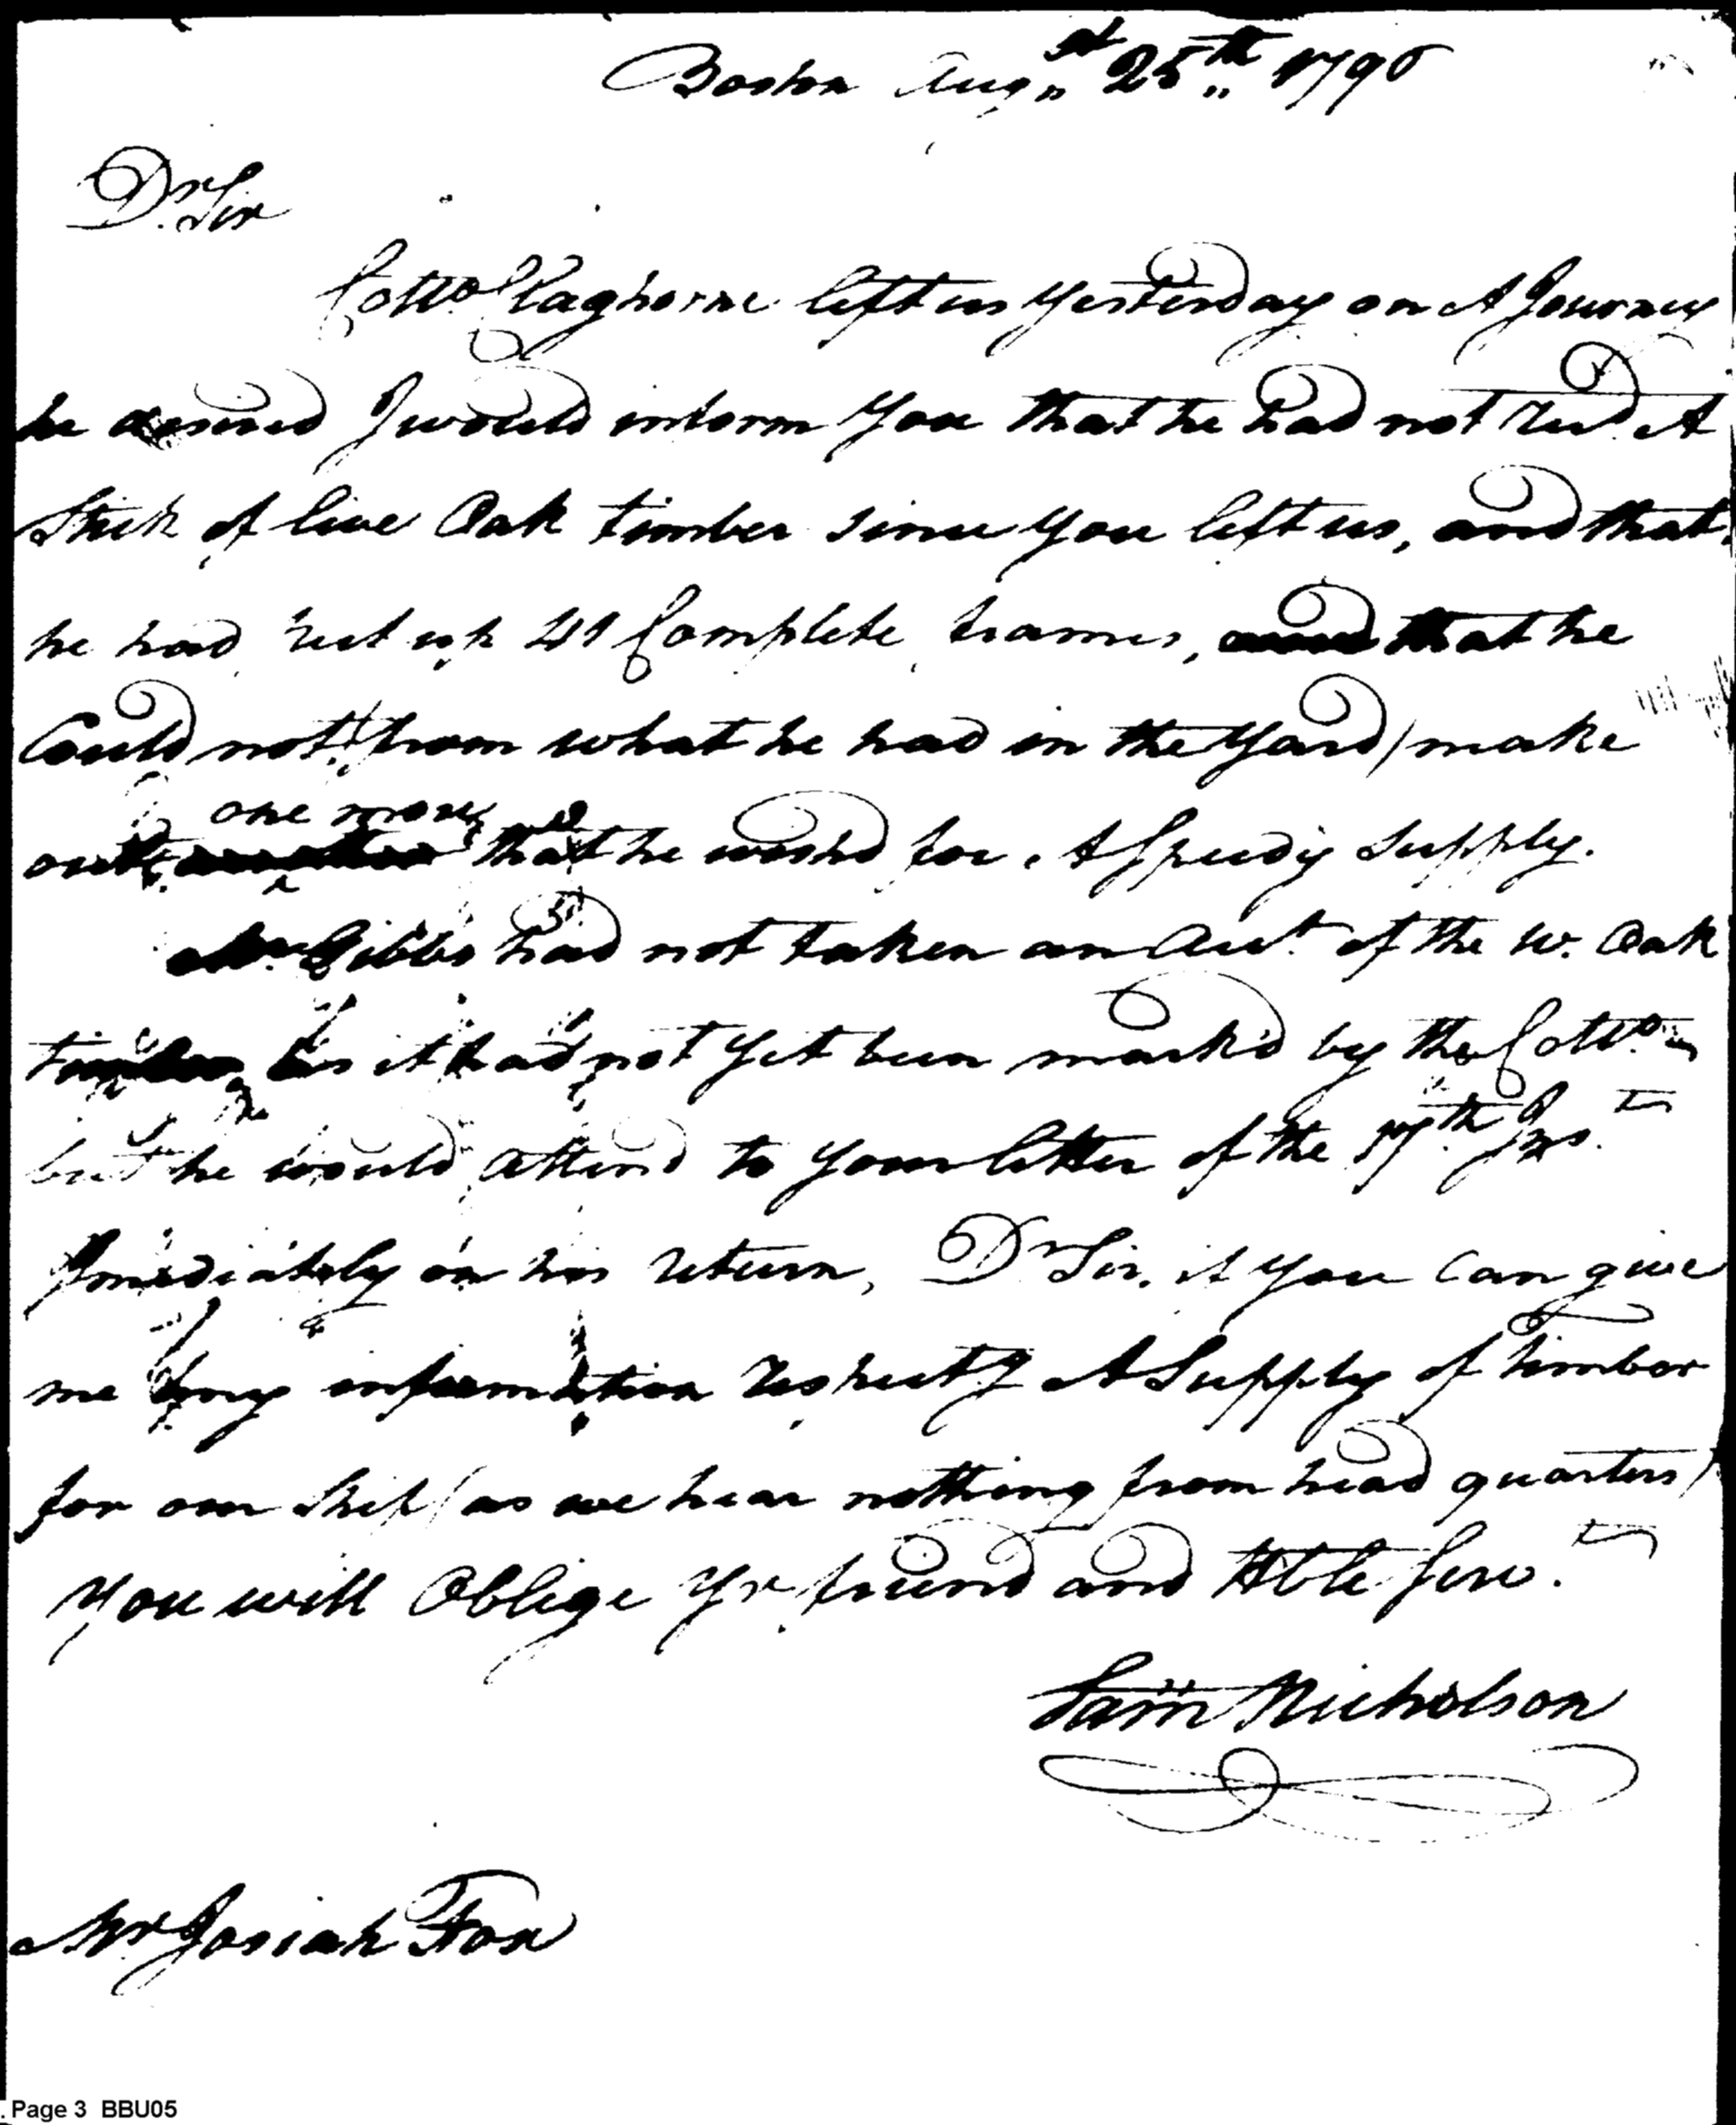 Boston Augst 25th 179
Dr Sir
Collo Claghorne left us yesterday on A Journey
he desired I would inform you that he had not recd A
Stick of live Oak timber since you left us, and that
he had set up 41 Complete frames, and that he
Could not (from what he had in the yard) make
out one more that he wishd for A Speedy Supply.
Mr Gibbs had not taken an Acct of the W. Oak
timber as it had not yet been markd by the Collo
but he would attend to your letter of the 17th Inst
Imediately on his return, Dr Sir, if you Can give
me any information respectg A Supply of timber
for our Ship (as we hear nothing from head quarters)
you will Oblige yr friend and Hble Servt
Sam Nicholson
Mr Josiah Fox
Page 3 BBU05